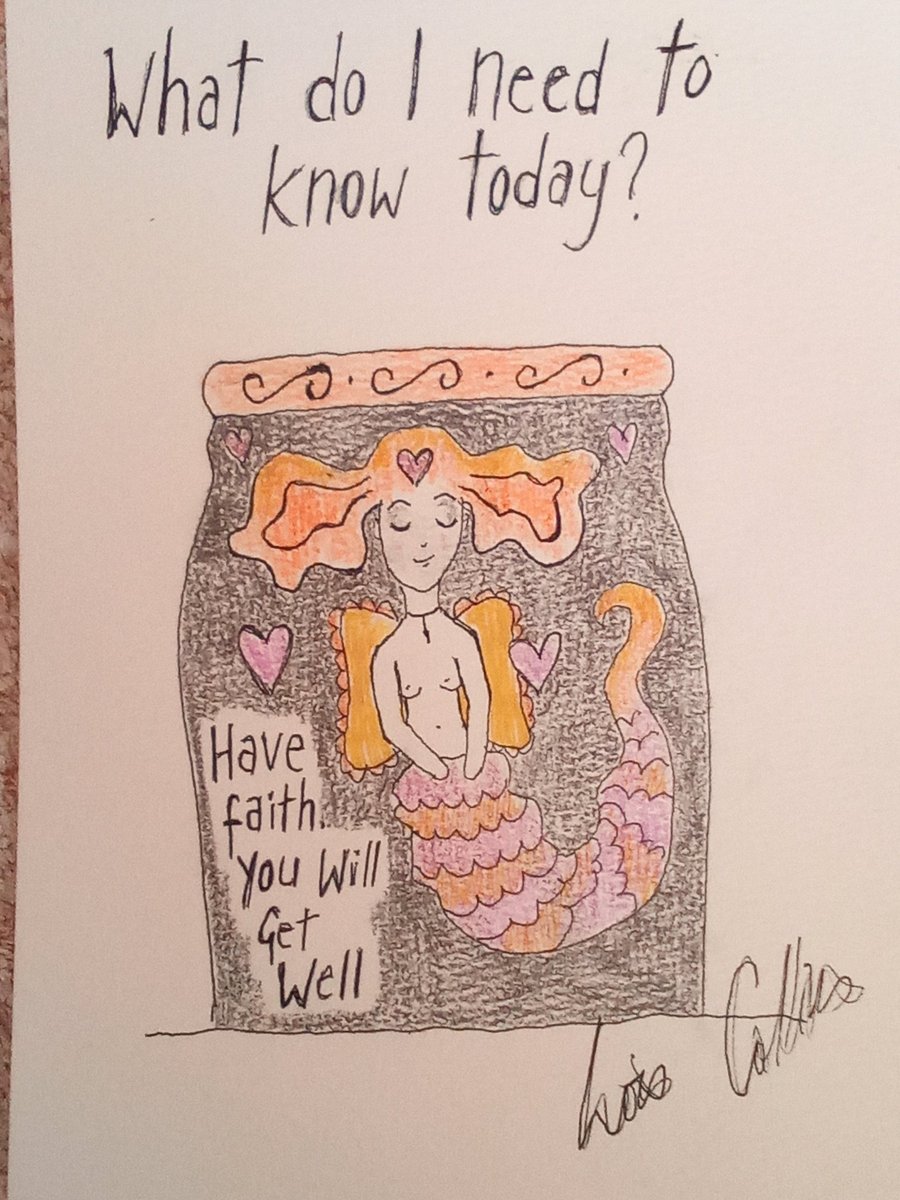 What do I need to
know today?
Have
faith.
You Will
Get
Well
Lois